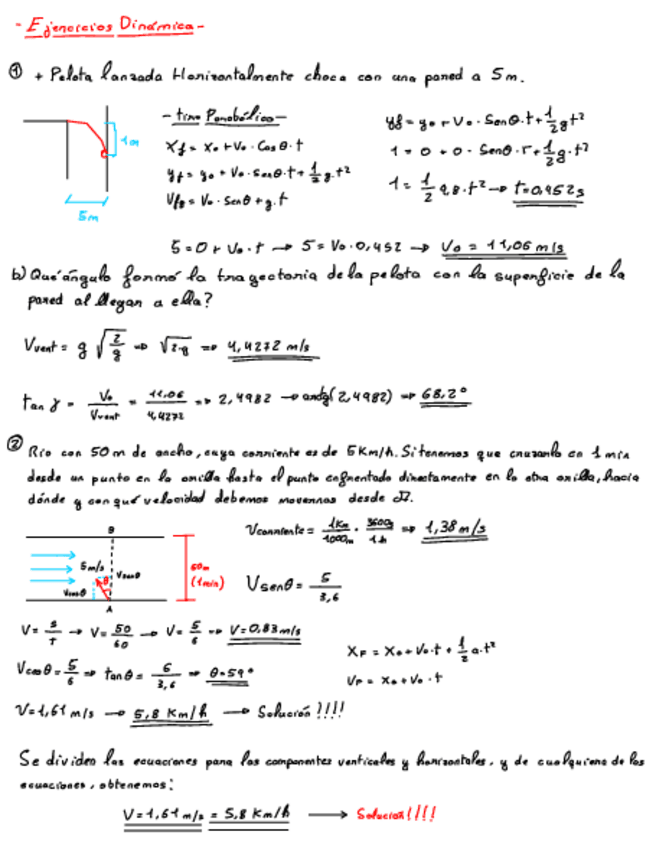 - Ejercicios Dinámica -
① + Pelota lanzada Horizontalmente choca con una pared a 5m.
- tiro Parabólico -
1m
5m
Xf = Xo + Vo · Cosθ · t
yf = yo + Vo · senθ · t + 1/2 g · t²
Vfy = Vo · senθ + g · t
yf = yo + Vo · Senθ · t + 1/2 g t²
1 = 0 + 0 · Senθ · t + 1/2 g · t²
1 = 1/2 9,8 · t² → t = 0,452 s
5 = 0 + Vo · t → 5 = Vo · 0,452 → Vo = 11,06 m/s
b) Qué ángulo formó la trayectoria de la pelota con la superficie de la
pared al llegar a ella?
Vvert = g √(2/g) ⇒ √(2·g) ⇒ 4,4272 m/s
tan γ = Vo/Vvert = 11,06/4,4272 ⇒ 2,4982 → (2,4982) ⇒ 68,2°
② Río con 50 m de ancho, cuya corriente es de 5 Km/h. Si tenemos que cruzarlo en 1 min
desde un punto en la orilla hasta el punto directamente en la otra orilla, hacia
dónde y con qué velocidad debemos movernos desde
B
5 m/s
Vsenθ
Vcosθ
θ
A
50m
(1min)
Vcorriente = 1Km/1000m · 3600s/1h ⇒ 1,38 m/s
Vsenθ = 5/3,6
V = s/t → V = 50/60 → V = 5/6 ⇒ V = 0,83 m/s
Vcosθ = 5/6 ⇒ tanθ = 6/3,6 ⇒ θ = 59°
XF = Xo + Vo · t + 1/2 a · t²
VF = Xo + Vo · t
V = 1,61 m/s → 5,8 Km/h → Solución!!!!
Se dividen las ecuaciones para las componentes verticales y horizontales, y de cualquiera de las
ecuaciones, obtenemos:
V = 1,61 m/s = 5,8 Km/h → Solución!!!!